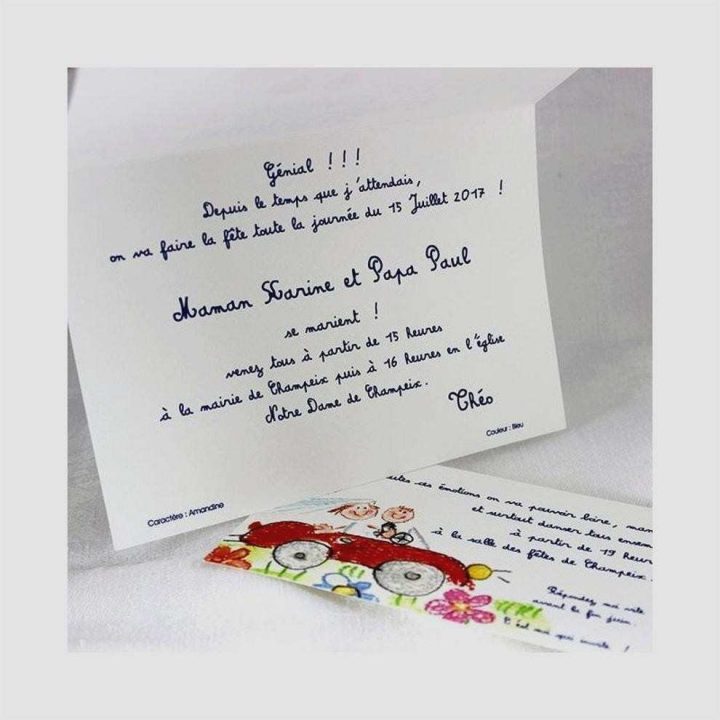 Génial ! ! !
Depuis le temps que j'attendais,
on va faire la fête toute la journée du 15 Juillet 2017 !
Maman Marine et Papa Paul
se marient !
venez tous à partir de 15 heures
à la mairie de Champeix puis à 16 heures en l'église
Notre Dame de Champeix.
Théo
Couleur : Bleu
Caractère : Amandine
ces émotions on va pouvoir boire,
et surtout danser tous
à partir de 19
à la salle des fêtes de Champeix.
Répondez moi vite
avant la fin juin.
C'est moi qui invite !